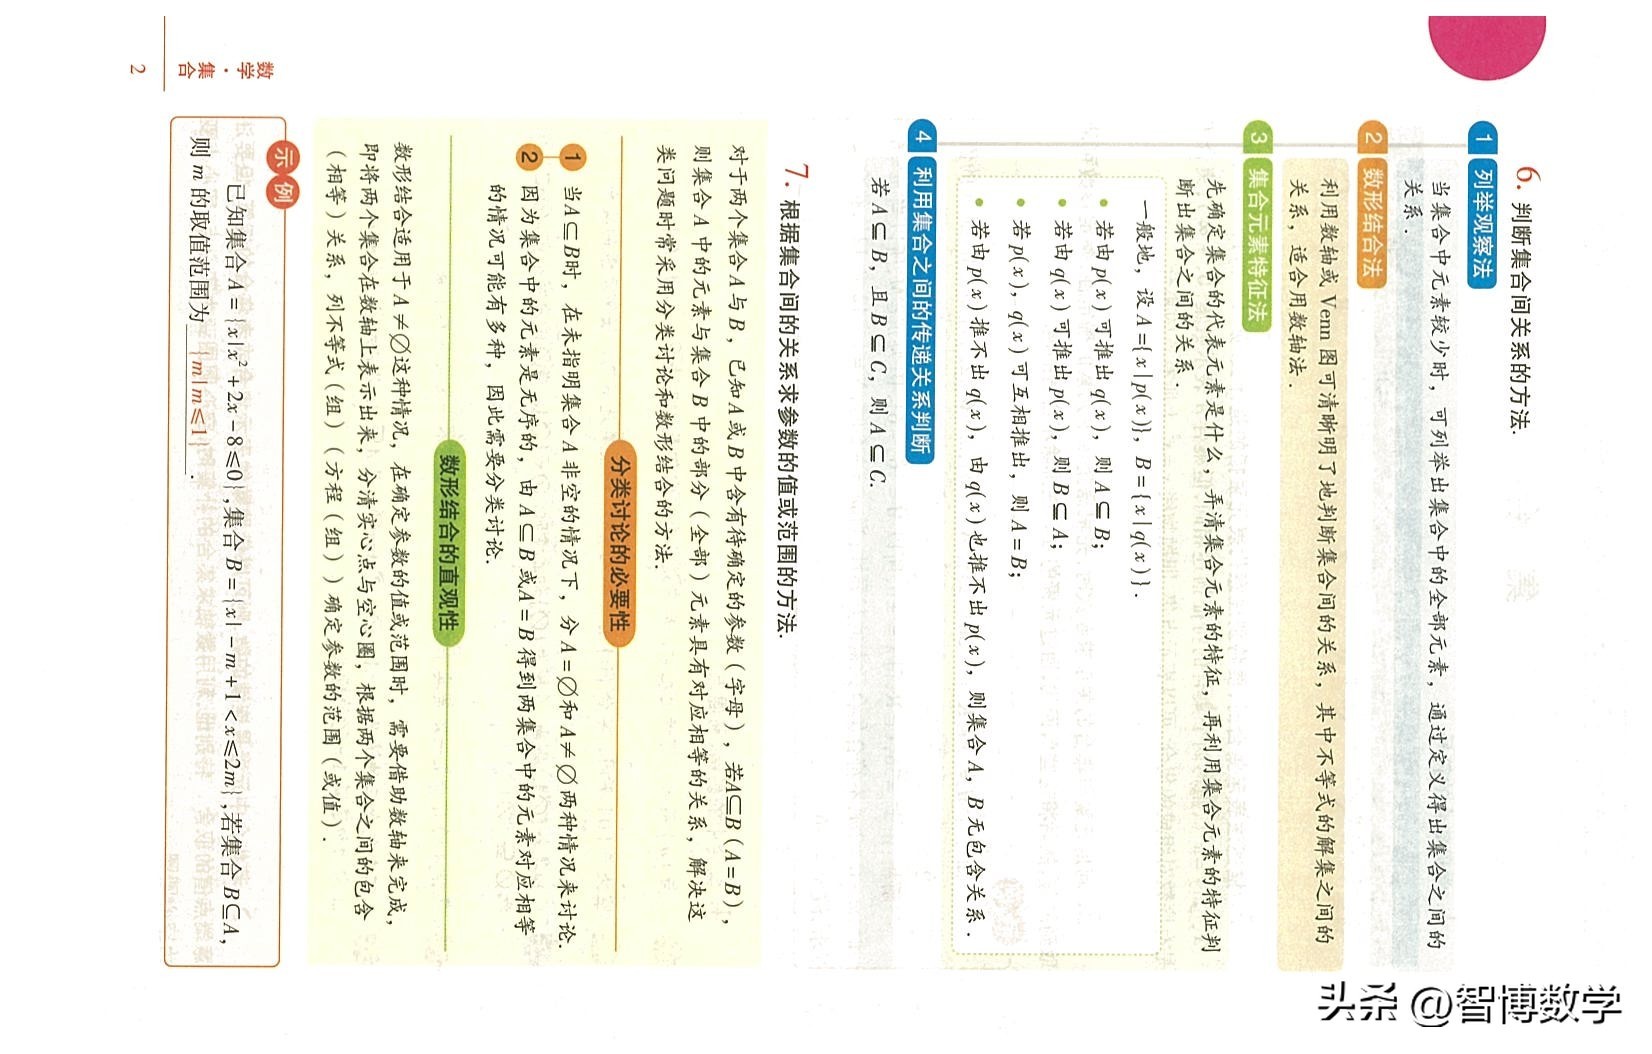 6. 判断集合间关系的方法.
1 列举观察法
当集合中元素较少时，可列举出集合中的全部元素，通过定义得出集合之间的
关系.
2 数形结合法
利用数轴或 Venn 图可清晰明了地判断集合间的关系，其中不等式的解集之间的
关系，适合用数轴法.
3 集合元素特征法
先确定集合的代表元素是什么，弄清集合元素的特征，再利用集合元素的特征判
断出集合之间的关系.
一般地，设 A={x|p(x)}，B={x|q(x)}.
• 若由 p(x) 可推出 q(x)，则 A⊆B；
• 若由 q(x) 可推出 p(x)，则 B⊆A；
• 若 p(x)，q(x) 可互相推出，则 A=B；
• 若由 p(x) 推不出 q(x)，由 q(x) 也推不出 p(x)，则集合 A，B 无包含关系.
4 利用集合之间的传递关系判断
若 A⊆B，且 B⊆C，则 A⊆C.
7. 根据集合间的关系求参数的值或范围的方法.
对于两个集合 A 与 B，已知 A 或 B 中含有待确定的参数（字母），若A⊆B（A=B），
则集合 A 中的元素与集合 B 中的部分（全部）元素具有对应相等的关系，解决这
类问题时常采用分类讨论和数形结合的方法.
分类讨论的必要性
1 当A⊆B时，在未指明集合 A 非空的情况下，分 A=∅和 A≠∅两种情况来讨论.
2 因为集合中的元素是无序的，由 A⊆B 或A=B 得到两集合中的元素对应相等
的情况可能有多种，因此需要分类讨论.
数形结合的直观性
数形结合适用于 A≠∅这种情况，在确定参数的值或范围时，需要借助数轴来完成，
即将两个集合在数轴上表示出来，分清实心点与空心圈，根据两个集合之间的包含
（相等）关系，列不等式（组）（方程（组））确定参数的范围（或值）.
示例
已知集合 A={x|x²+2x-8≤0},集合 B={x|-m+1<x≤2m},若集合 B⊆A,
则 m 的取值范围为 {m|m≤1} .
数学·集合
2
头条 @智博数学